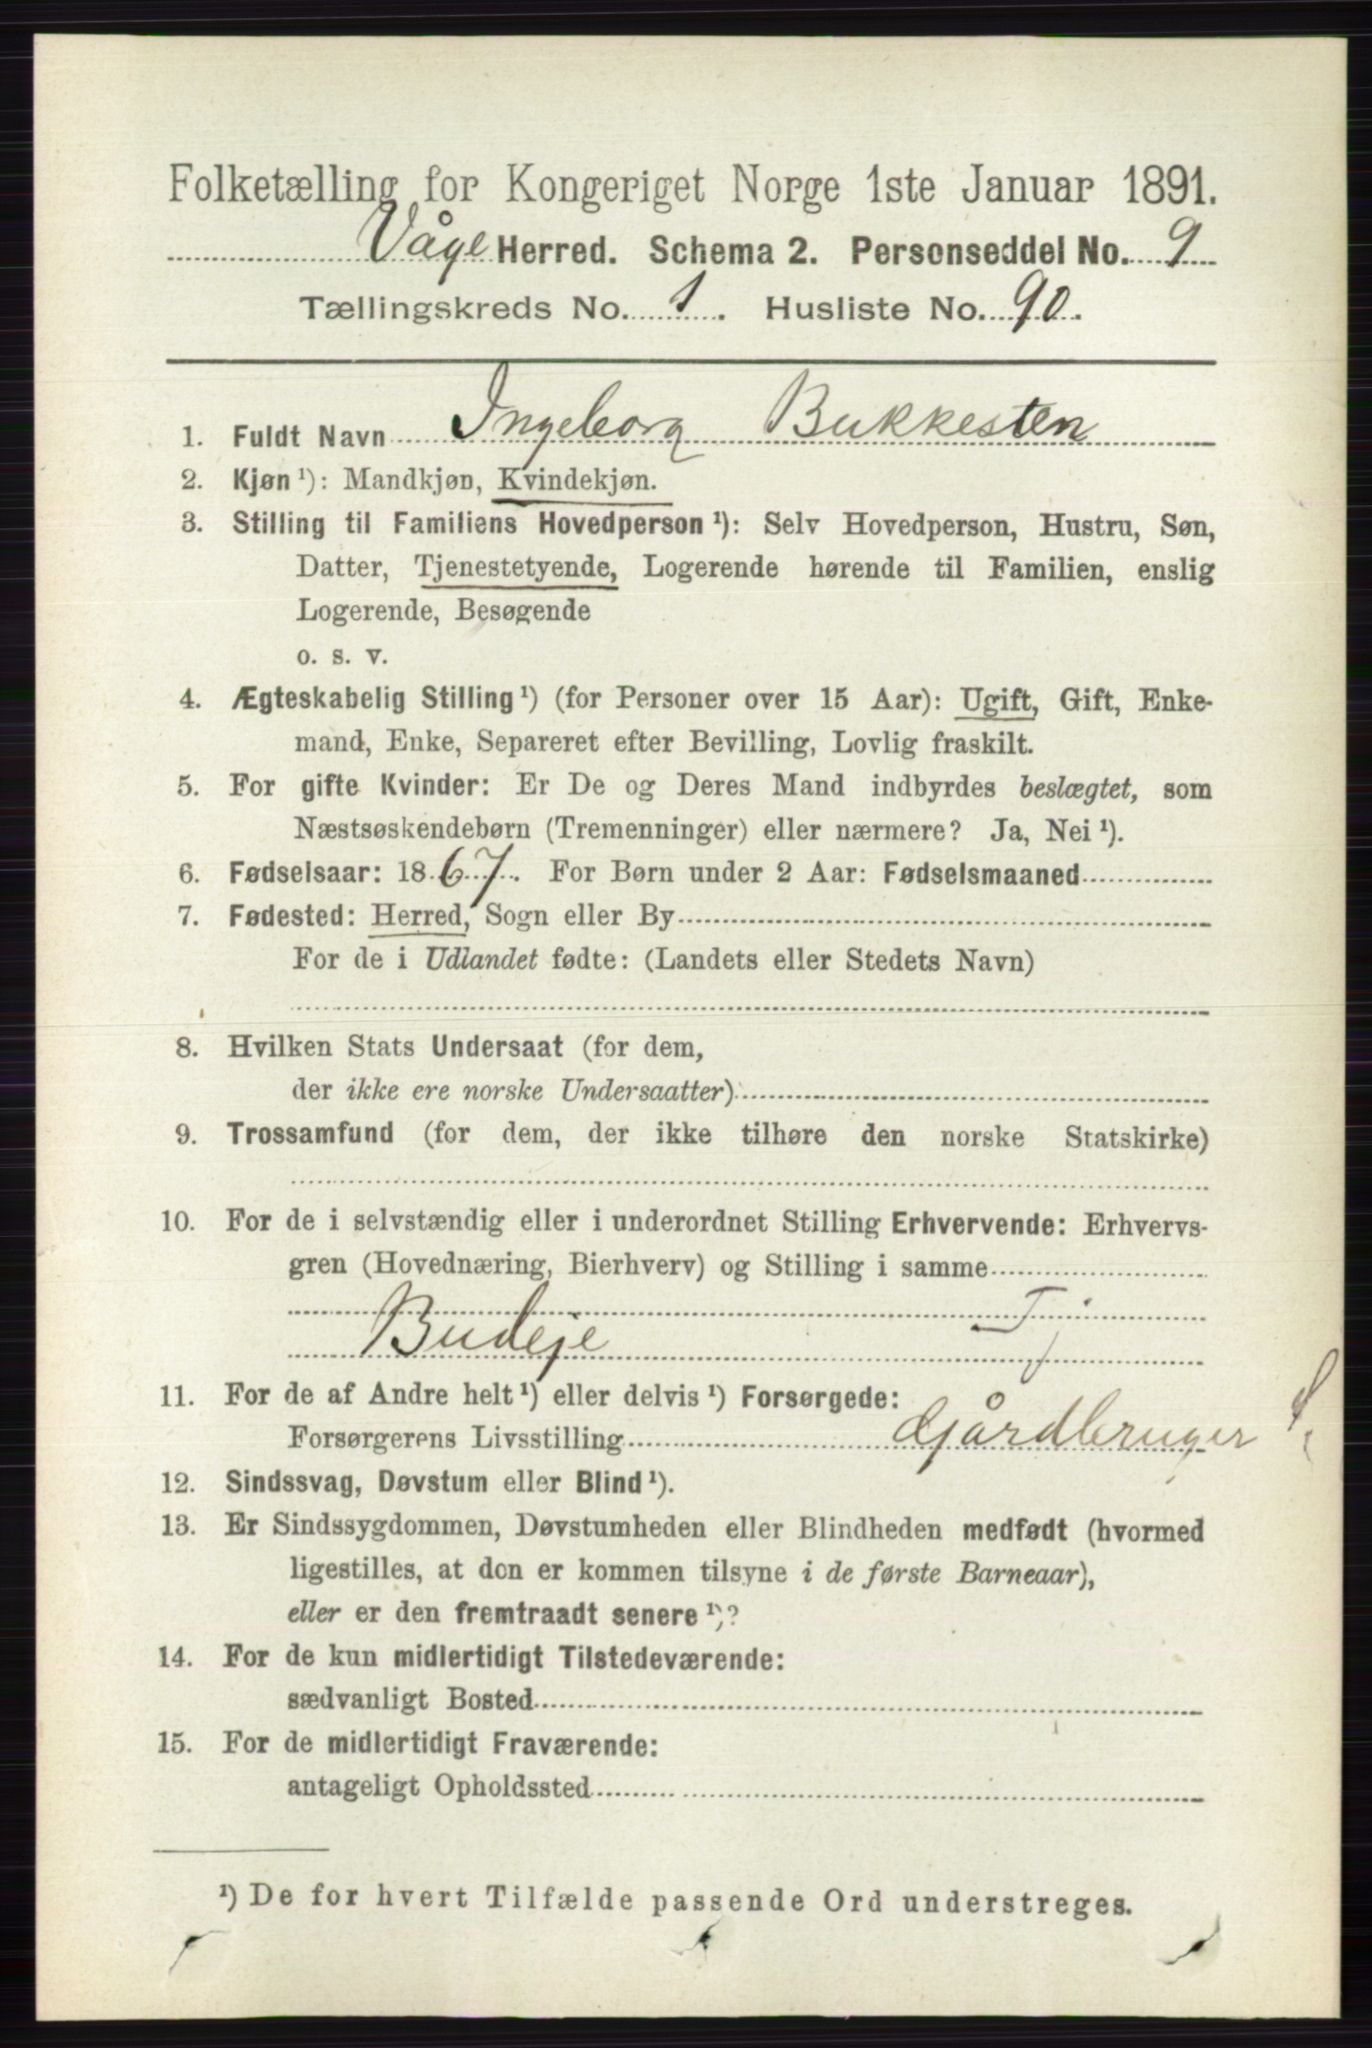 Folketælling for Kongeriget Norge 1ste Januar 1891.
Våge Herred. Schema 2. Personseddel No. 9
Tællingskreds No. 1. Husliste No. 90.
1. Fuldt Navn Ingeborg Bukkesten
2. Kjøn ¹): Mandkjøn, Kvindekjøn.
3. Stilling til Familiens Hovedperson ¹): Selv Hovedperson, Hustru, Søn,
Datter, Tjenestetyende, Logerende hørende til Familien, enslig
Logerende, Besøgende
o. s. v.
4. Ægteskabelig Stilling ¹) (for Personer over 15 Aar): Ugift, Gift, Enke-
mand, Enke, Separeret efter Bevilling, Lovlig fraskilt.
5. For gifte Kvinder: Er De og Deres Mand indbyrdes beslægtet, som
Næstsøskendebørn (Tremenninger) eller nærmere? Ja, Nei ¹).
6. Fødselsaar: 1867. For Børn under 2 Aar: Fødselsmaaned
7. Fødested: Herred, Sogn eller By
For de i Udlandet fødte: (Landets eller Stedets Navn)
8. Hvilken Stats Undersaat (for dem,
der ikke ere norske Undersaatter)
9. Trossamfund (for dem, der ikke tilhøre den norske Statskirke)
10. For de i selvstændig eller i underordnet Stilling Erhvervende: Erhvervs-
gren (Hovednæring, Bierhverv) og Stilling i samme
Budeje Tj
11. For de af Andre helt ¹) eller delvis ¹) Forsørgede:
Forsørgerens Livsstilling Gjårdbruger
12. Sindssvag, Døvstum eller Blind ¹).
13. Er Sindssygdommen, Døvstumheden eller Blindheden medfødt (hvormed
ligestilles, at den er kommen tilsyne i de første Barneaar),
eller er den fremtraadt senere ¹)?
14. For de kun midlertidigt Tilstedeværende:
sædvanligt Bosted
15. For de midlertidigt Fraværende:
antageligt Opholdssted
¹) De for hvert Tilfælde passende Ord understreges.